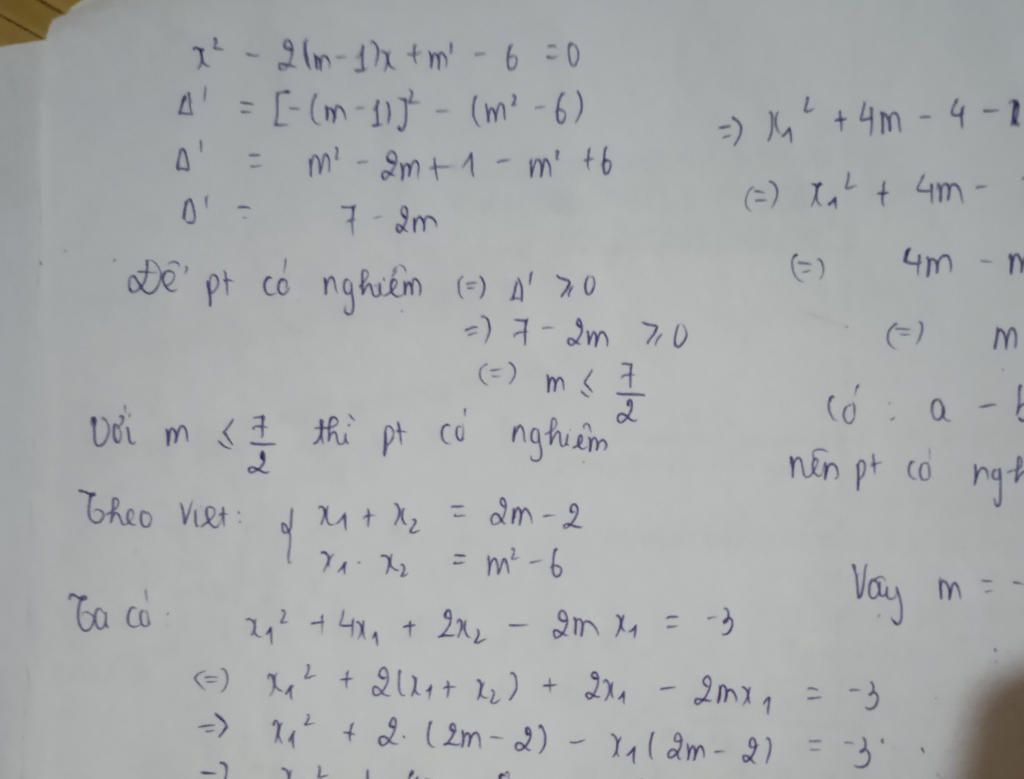 x² - 2(m-1)x + m² - 6 = 0
Δ' = [-(m-1)]² - (m² - 6)
Δ' = m² - 2m + 1 - m² + 6
Δ' = 7 - 2m
Để pt có nghiệm (=) Δ' ⩾ 0
=) 7 - 2m ⩾ 0
(=) m ⩽ 7/2
Với m ⩽ 7/2 thì pt có nghiệm
Theo Viet: { x₁ + x₂ = 2m - 2
x₁ . x₂ = m² - 6
Ta có: x₁² + 4x₁ + 2x₂ - 2m x₁ = -3
(=) x₁² + 2(x₁ + x₂) + 2x₁ - 2mx₁ = -3
=) x₁² + 2. (2m - 2) - x₁(2m - 2) = -3
=) x₁² + 4m - 4 -
(=) x₁² + 4m -
(=) 4m - m
(=) m
Có : a - b
nên pt có ngh
Vậy m = -